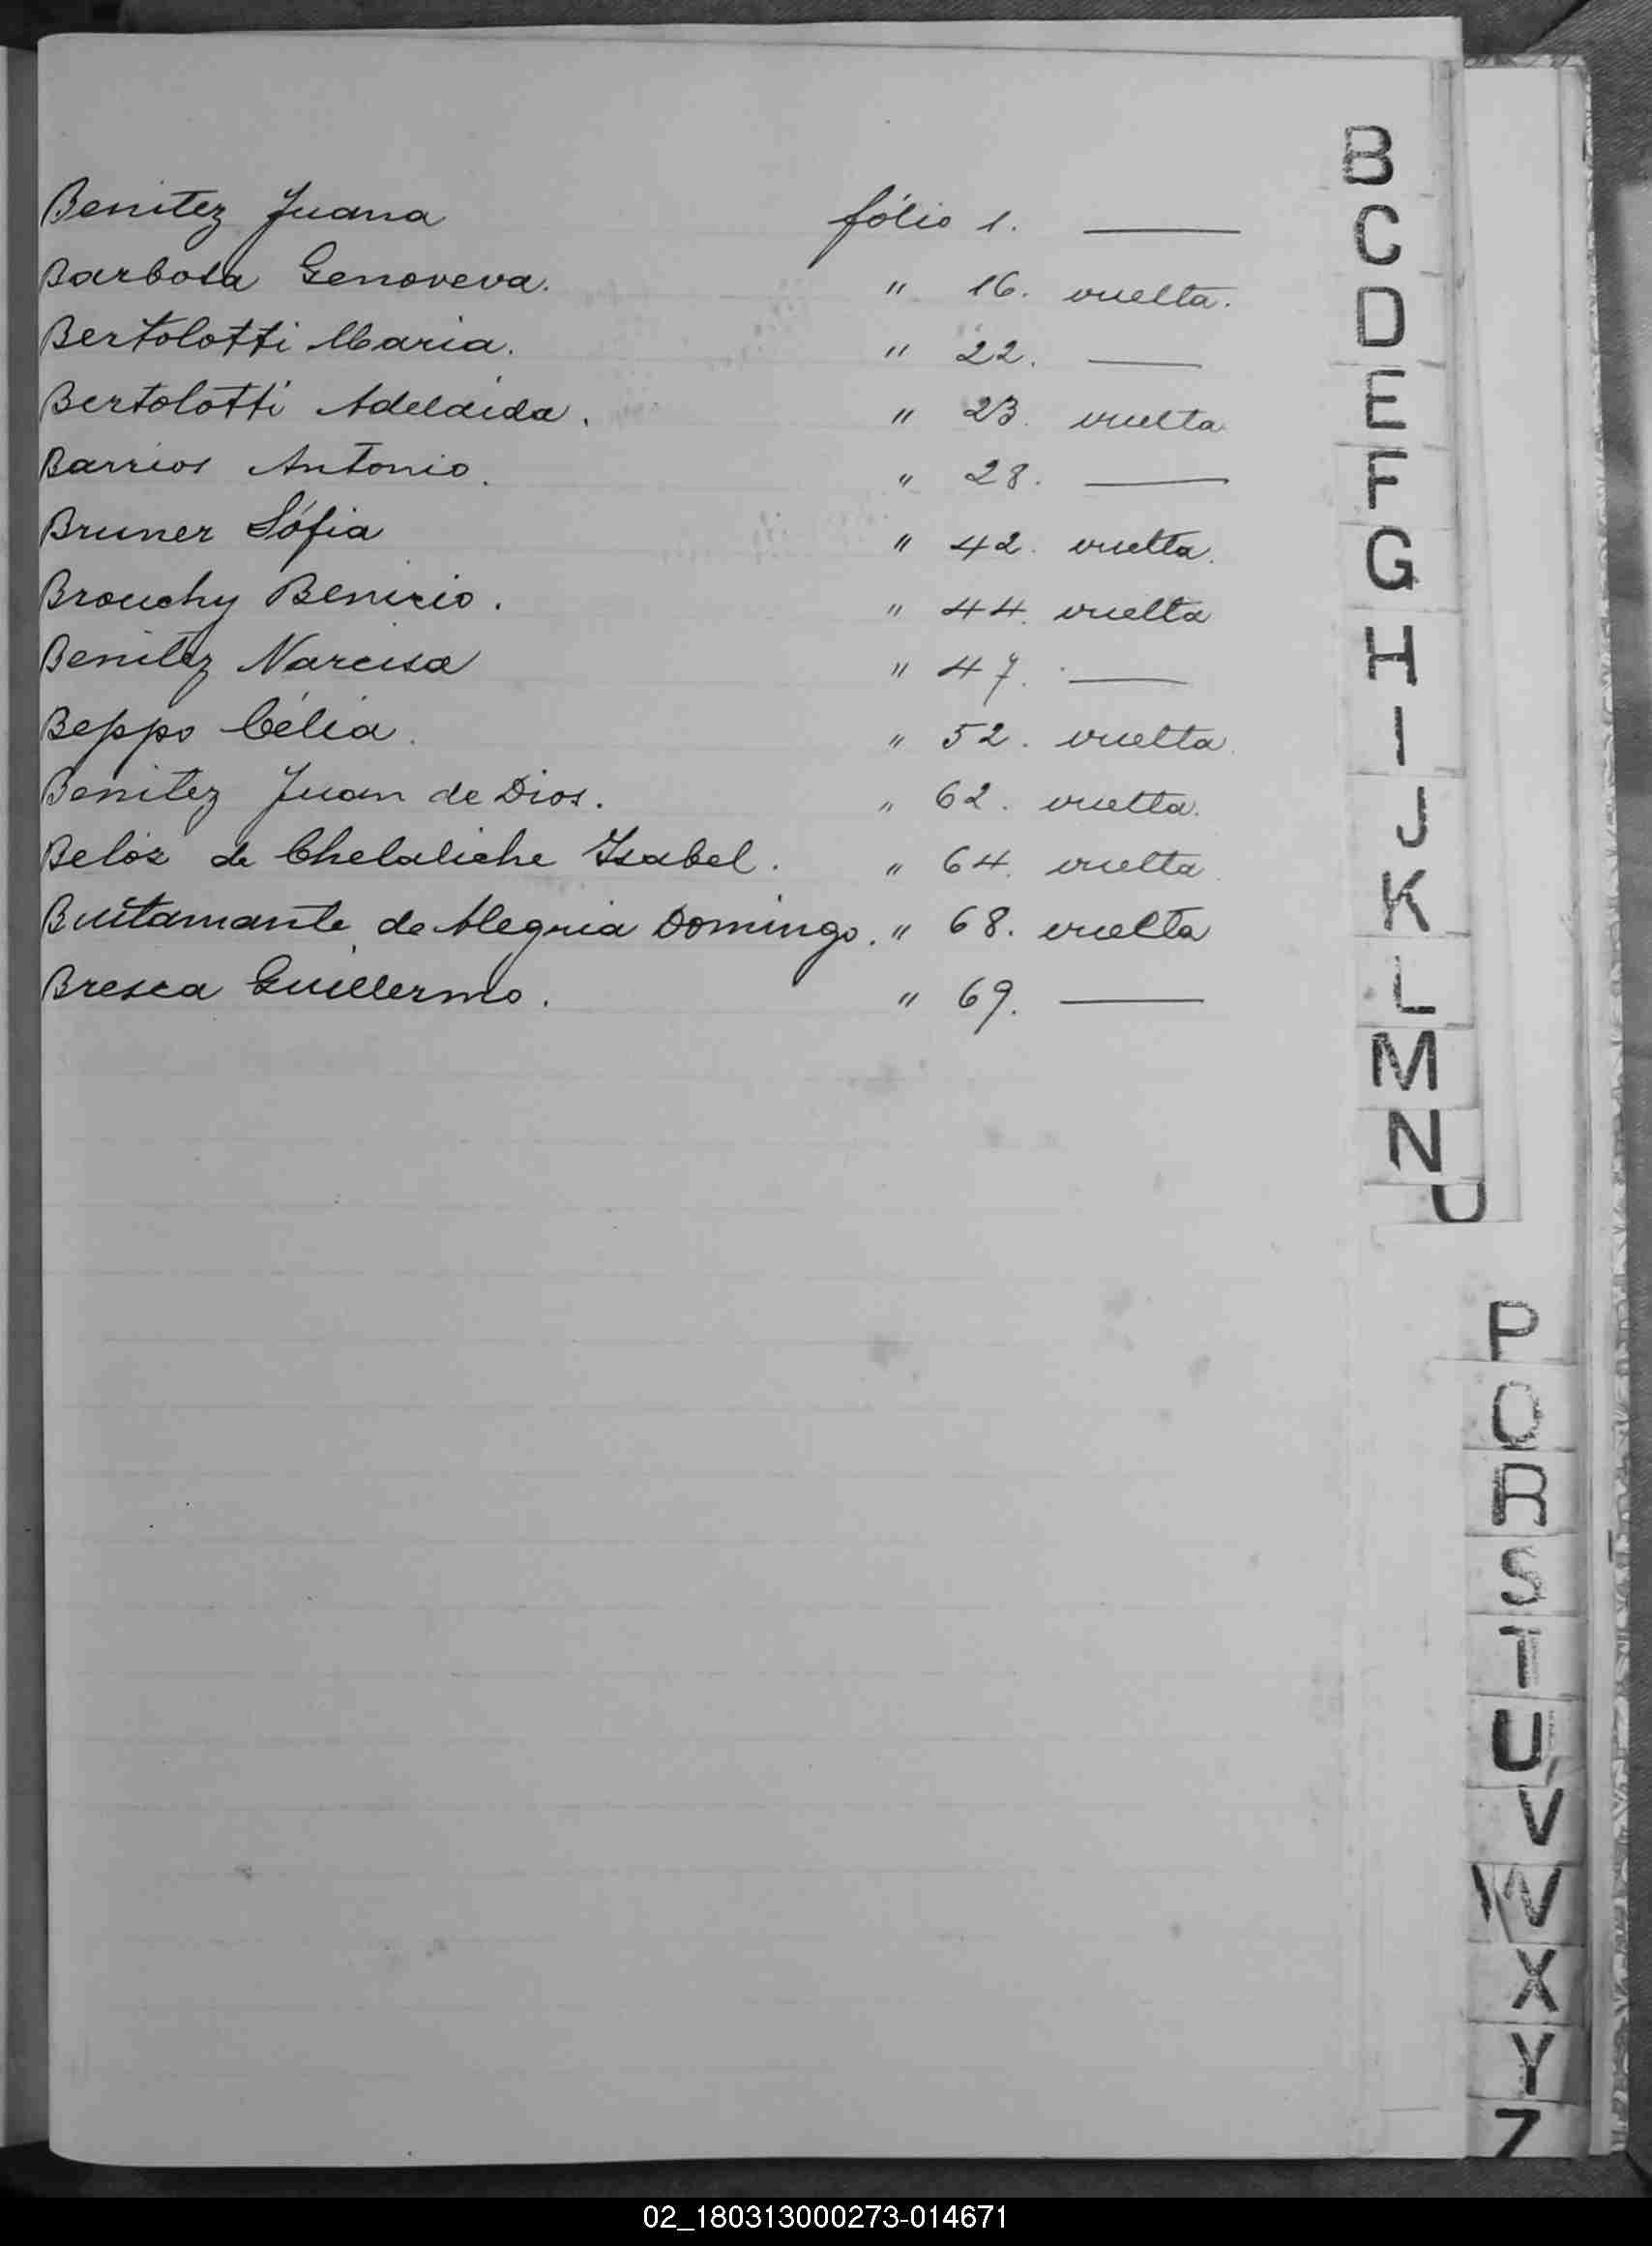 Benitez Juana fólio 1. ———
Barbosa Genoveva. " 16. vuelta.
Bertolotti Maria. " 22. ———
Bertolotti Adelaida. " 23. vuelta
Barrios Antonio. " 28. ———
Bruner Sófia " 42. vuelta.
Brouchy Benicio. " 44. vuelta
Benitez Narcisa " 47. ———
Beppo Célia. " 52. vuelta.
Benitez Juan de Dios. " 62. vuelta.
Belóz de Chelaliche Isabel. " 64. vuelta.
Bustamante de Alegria Domingo. " 68. vuelta
Bresca Guillermo. " 69. ———
B
C
D
E
F
G
H
I
J
K
L
M
N
O
P
Q
R
S
T
U
V
W
X
Y
Z
02_180313000273-014671